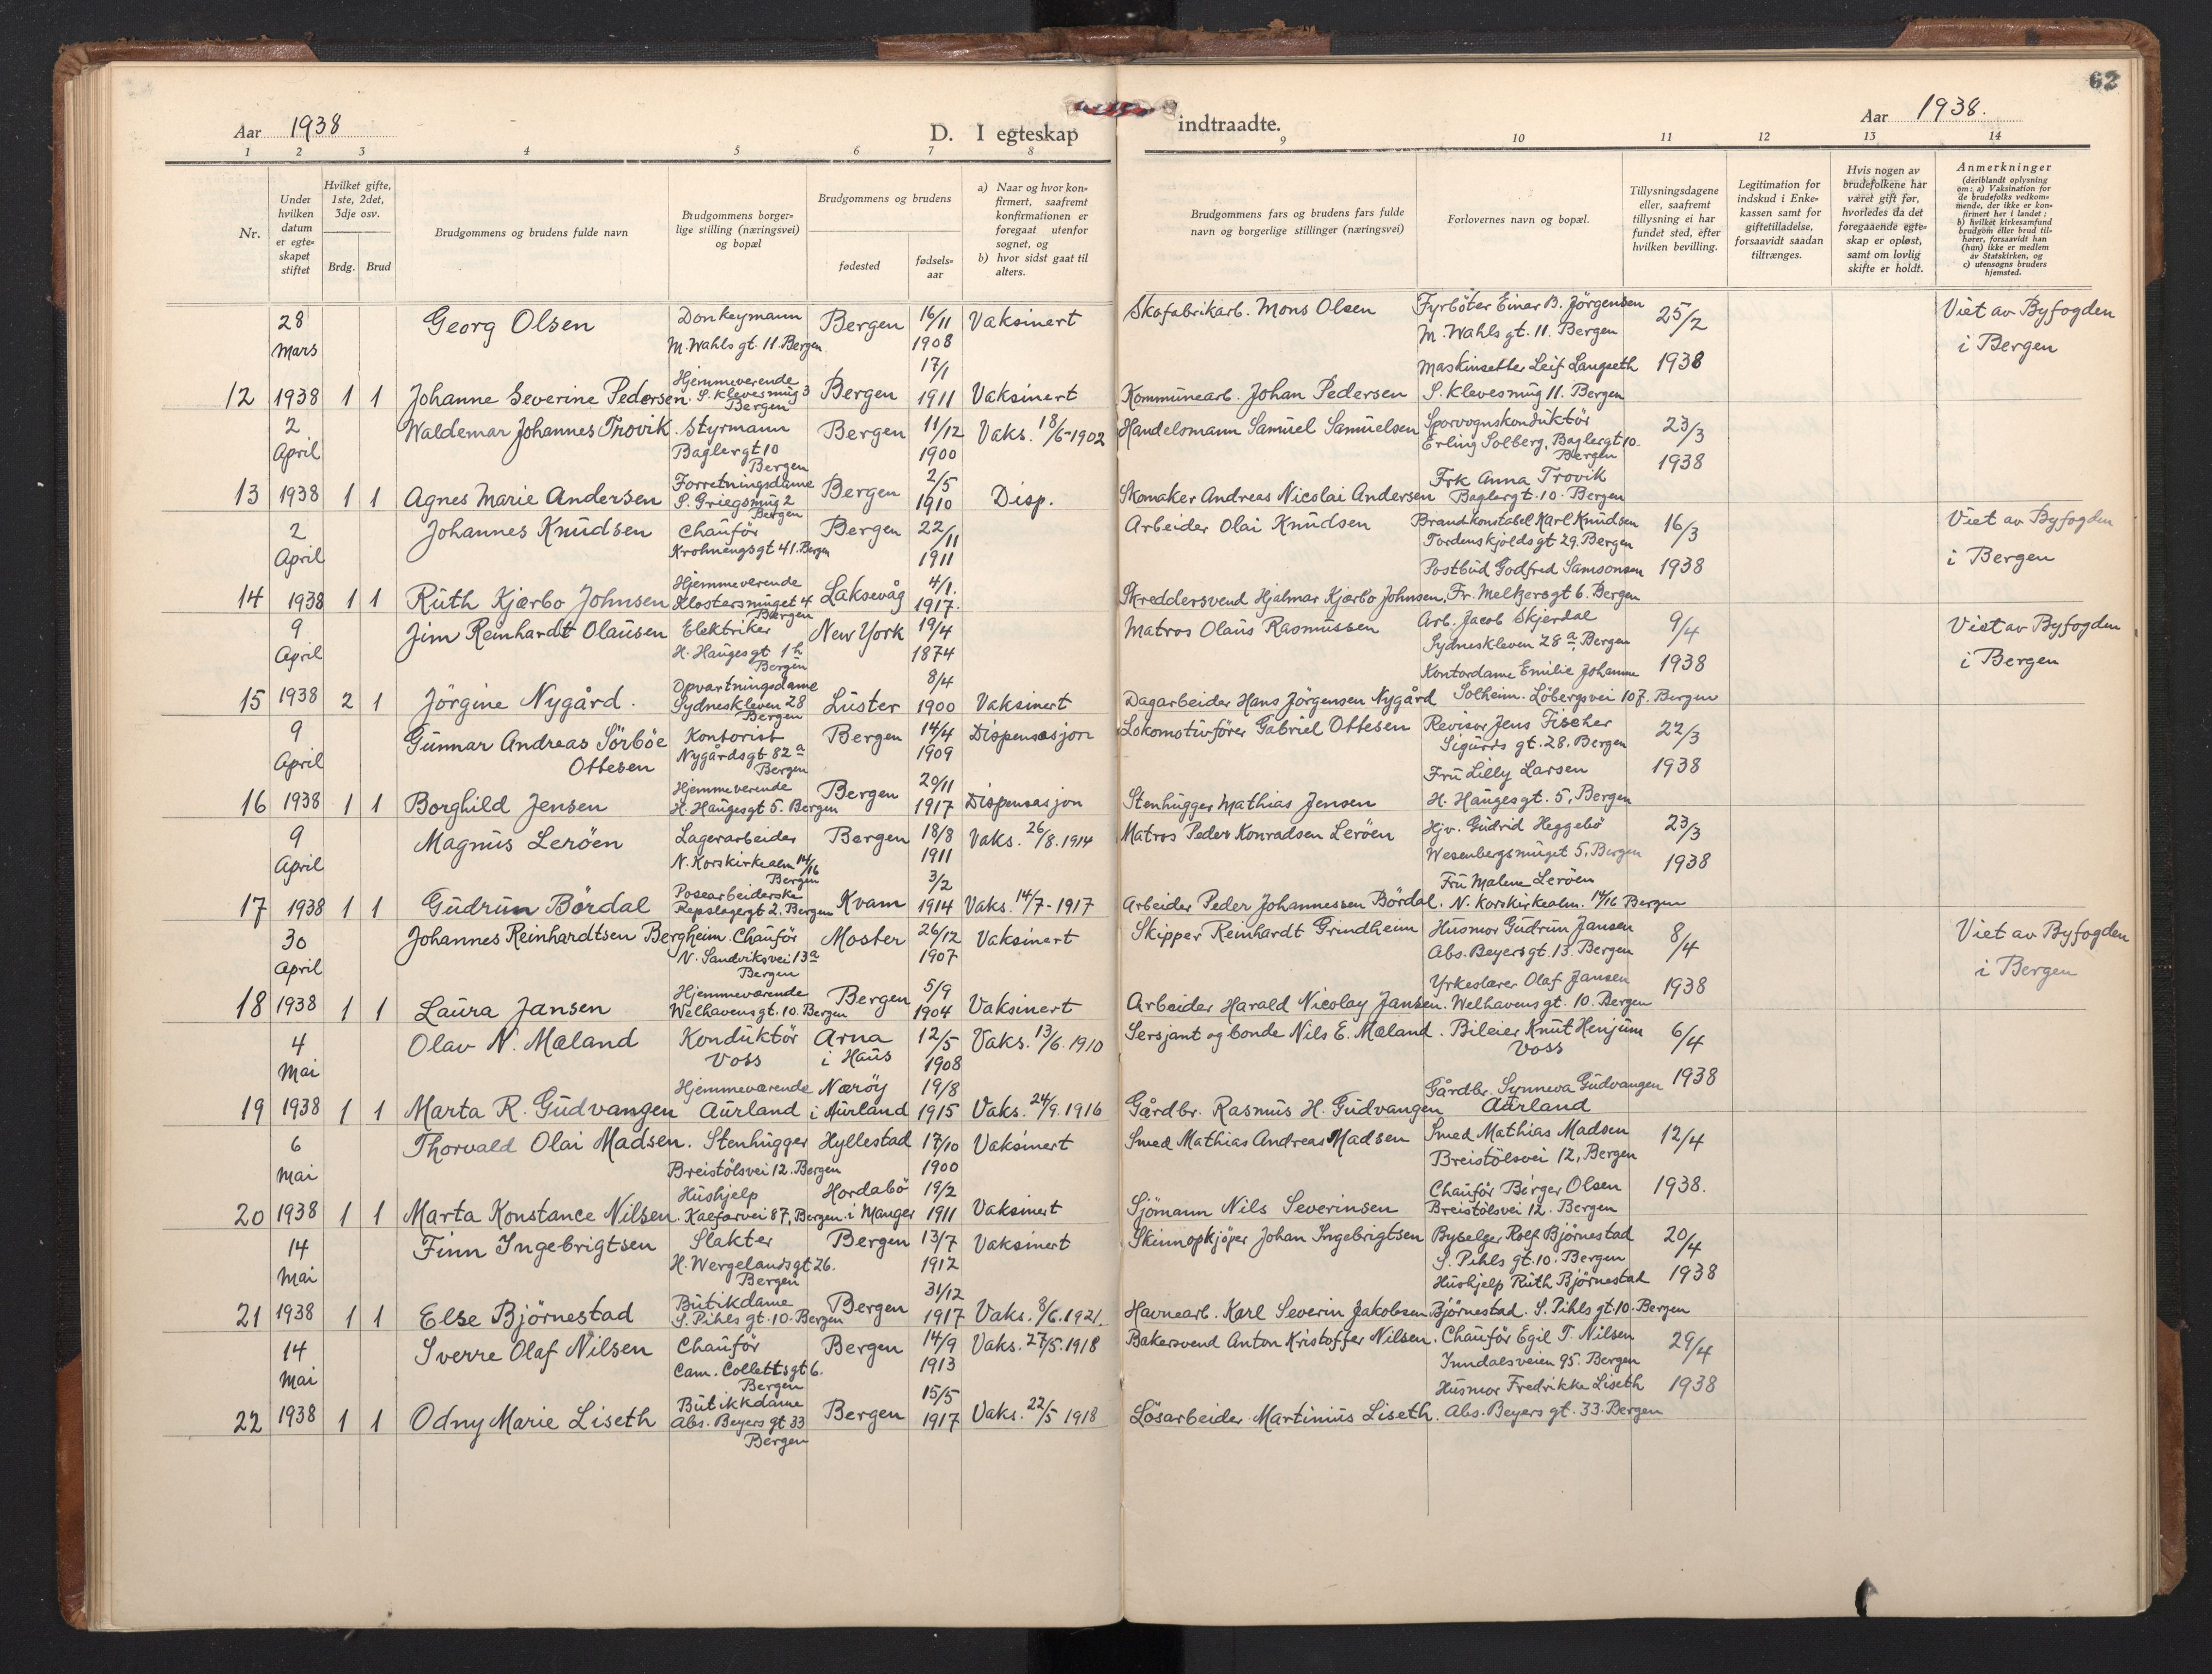 62
Aar 1938
D. I egteskap indtraadte.
Aar 1938.
1 2 3 4 5 6 7 8 9 10 11 12 13 14
Nr.
Under hvilken datum er egte-skapet stiftet
Hvilket gifte, 1ste, 2det, 3dje osv.
Brdg. Brud
Brudgommens og brudens fulde navn
Brudgommens borger-lige stilling (næringsvei) og bopæl
Brudgommens og brudens
fødested
fødsels-aar
a) Naar og hvor kon-firmert, saafremt konfirmationen er foregaat utenfor sognet, og
b) hvor sidst gaat til alters.
Brudgommens fars og brudens fars fulde navn og borgerlige stillinger (næringsvei)
Forlovernes navn og bopæl.
Tillysningsdagene eller, saafremt tillysning ei har fundet sted, efter hvilken bevilling.
Legitimation for indskud i Enke-kassen samt for giftetilladelse, forsaavidt saadan tiltrænges.
Hvis nogen av brudefolkene har været gift før, hvorledes da det foregaaende egte-skap er opløst, samt om lovlig skifte er holdt.
Anmerkninger
(deriblandt oplysning om: a) Vaksination for de brudefolks vedkom-mende, der ikke er kon-firmert her i landet; b) hvilket kirkesamfund brudgom eller brud til-hører, forsaavidt han (hun) ikke er medlem av Statskirken, og c) utensogns bruders hjemsted.
12
28 Mars 1938
1 1
Georg Olsen
Donkeymann
M. Wahls gt. 11. Bergen
Bergen
16/11 1908
Vaksinert
Skofabrikarb. Mons Olsen
Fyrböter Einar B. Jörgensen
M. Wahls gt. 11. Bergen
25/2 1938
Viet av Byfogden
i Bergen
Johanne Severine Pedersen.
Hjemmeverende
S. Klevesmug 3
Bergen
Bergen
17/1 1911
Vaksinert
Kommunearb. Johan Pedersen
Maskinsetter Leif Langseth
S. Klevesmug 11. Bergen
13
2 April 1938
1 1
Waldemar Johannes Trovik.
Styrmann
Baglergt 10
Bergen
Bergen
11/12 1900
Vaks. 18/6-1902
Handelsmann Samuel Samuelsen
Sporvognskonduktör
Erling Solberg, Baglergt 10.
Bergen
23/3 1938
Agnes Marie Andersen
Forretningsdame
S. Griegsmug 2
Bergen
Bergen
2/5 1910
Disp.
Skomaker Andreas Nicolai Andersen
Frk Anna Trovik
Baglergt. 10. Bergen
14
2 April 1938
1 1
Johannes Knudsen
Chauför
Krohnengsgt 41. Bergen
Bergen
22/11 1911
Arbeider Olai Knudsen
Brandkonstabel Karl Knudsen
Tordenskjoldsgt 29. Bergen
16/3 1938
Viet av Byfogden
i Bergen
Ruth Kjærbo Johnsen
Hjemmeverende
Klostersmuget 4
Bergen
Laksevåg
4/1. 1917.
Skreddersvend Hjalmar Kjærbo Johnsen.
Postbud Godfred Samsonsen
Fr. Meltzersgt 6. Bergen
15
9 April 1938
2 1
Jim Reinhardt Olausen
Elektriker
H. Haugesgt 1b
Bergen
New York
19/4 1874
Matros Olaus Rasmussen
Arb. Jacob Skjerdal
Sydneskleven 28a. Bergen
9/4 1938
Viet av Byfogden
i Bergen
Jörgine Nygård.
Opvartningsdame
Sydneskleven 28
Bergen
Luster
8/4 1900
Vaksinert
Dagarbeider Hans Jörgensen Nygård
Kontordame Emilie Johanne
Solheim. Löbergsvei 107. Bergen
16
9 April 1938
1 1
Gunnar Andreas Sörböe
Ottesen
Kontorist
Nygårdsgt 82a
Bergen
Bergen
14/4 1909
Dispensasjon
Lokomotivförer Gabriel Ottesen
Revisor Jens Fischer
Sigurds gt. 28. Bergen
22/3 1938
Borghild Jensen
Hjemmeverende
H. Haugesgt 5. Bergen
Bergen
20/11 1917
Dispensasjon
Stenhugger Mathias Jensen
Fru Lilly Larsen
H. Haugesgt. 5, Bergen
17
9 April 1938
1 1
Magnus Leröen
Lagerarbeider
N. Korskirkealm 14/16
Bergen
Bergen
18/8 1911
Vaks. 26/8. 1914
Matros Peder Konradsen Leröen
Hjv. Gudrid Heggebö
Wesenbergsmuget 5, Bergen
23/3 1938
Gudrun Bördal
Posearbeiderske
Repslagergt 2, Bergen
Kvam
3/2 1914
Vaks. 14/7-1917
Arbeider Peder Johannessen Bördal.
Fru Malene Leröen
N. Korskirkealm. 14/16 Bergen
18
30 April 1938
1 1
Johannes Reinhardtsen Bergheim.
Chauför
N. Sandviksvei 13a
Bergen
Moster
26/12 1907
Vaksinert
Skipper Reinhardt Grindheim
Husmor Gudrun Jansen
Abs. Beyersgt. 13. Bergen
8/4 1938
Viet av Byfogden
i Bergen
Laura Jansen
Hjemmeværende
Welhavensgt. 10. Bergen
Bergen
5/9 1904
Vaksinert
Arbeider Harald Nicolay Jansen.
Yrkeslærer Olaf Jansen
Welhavens gt. 10. Bergen
19
4 Mai 1938
1 1
Olav N. Mæland
Konduktör
Voss
Arna
i Haus
12/5 1908
Vaks. 13/6. 1910
Sersjant og bonde Nils E. Mæland.
Bileier Knut Henjum
Voss
6/4 1938
Marta R. Gudvangen
Hjemmeværende
Aurland
Nærøy
i Aurland
19/8 1915
Vaks. 24/9. 1916
Gårdbr. Rasmus H. Gudvangen
Gårdbr. Synneva Gudvangen
Aurland
20
6 Mai 1938
1 1
Thorvald Olai Madsen.
Stenhugger
Breistölsvei 12. Bergen
Hyllestad
17/10 1900
Vaksinert
Smed Mathias Andreas Madsen
Smed Mathias Madsen
Breistölsvei 12, Bergen
12/4 1938.
Marta Konstance Nilsen.
Hushjelp
Kalfarvei 87, Bergen.
Hordabö
i Manger
19/2 1911
Vaksinert
Sjömann Nils Severinsen
Chauför Birger Olsen
Breistölsvei 12. Bergen
21
14 Mai 1938
1 1
Finn Ingebrigtsen
Slakter
H. Wergelandsgt 26.
Bergen
Bergen
13/7 1912
Vaksinert
Skinnopkjöper Johan Ingebrigtsen
Byselger Rolf Björnestad
S. Pihls gt. 10. Bergen
20/4 1938
Else Björnestad
Butikdame
S. Pihls gt. 10. Bergen
Bergen
31/12 1917
Vaks. 8/6. 1921.
Havnearb. Karl Severin Jakobsen Björnestad.
Hushjelp Ruth Björnestad
S. Pihls gt. 10. Bergen
22
14 Mai 1938
1 1
Sverre Olaf Nilsen
Chauför
Cam. Colletts gt 6.
Bergen
Bergen
14/9 1913
Vaks. 27/5. 1918
Bakersvend Anton Kristoffer Nilsen.
Chauför Egil T. Nilsen
Inndalsveien 95. Bergen
29/4 1938
Odny Marie Liseth
Butikkdame
Abs. Beyers gt 33
Bergen
Bergen
15/5 1917
Vaks. 22/5 1918
Lösarbeider Martinius Liseth.
Husmor Fredrikke Liseth
Abs. Beyers gt. 33. Bergen